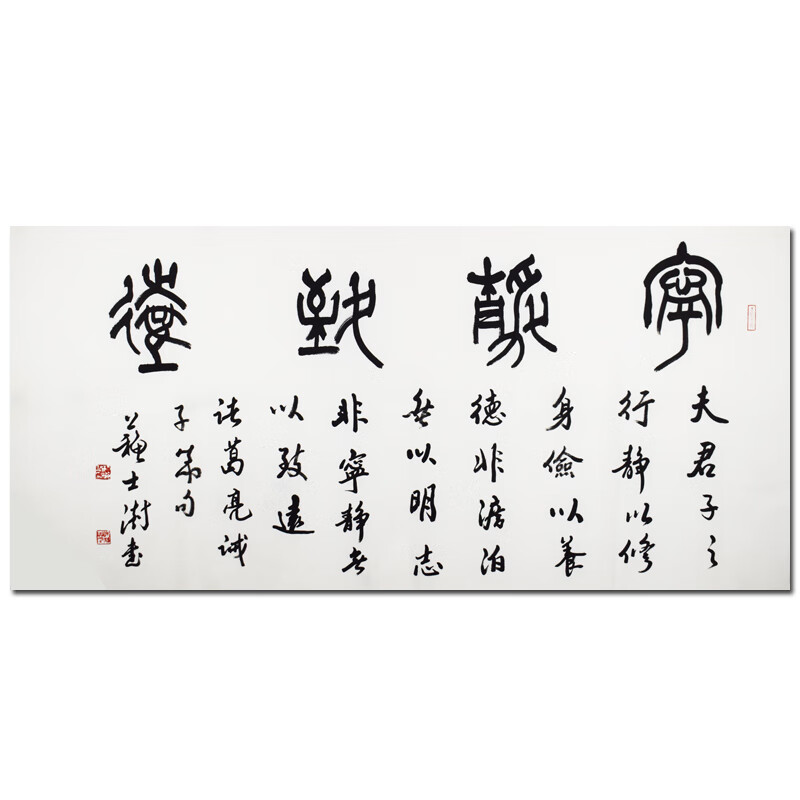 寧靜致遠
夫君子之
行靜以修
身儉以養
德非澹泊
無以明志
非寧靜無
以致遠
諸葛亮誡
子篇句
蘇士澍書